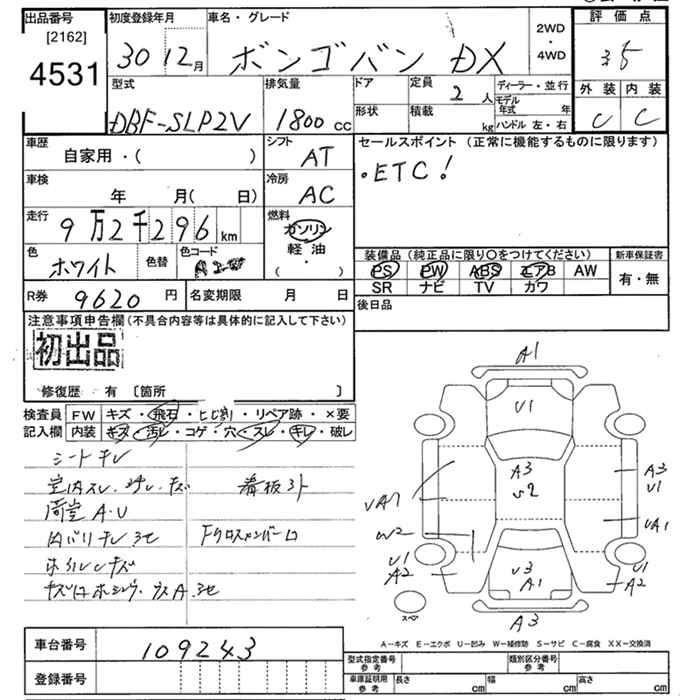 出品番号
[2162]
4531
初度登録年月
30 12月
車名・グレード
ボンゴバン DX
2WD
・
4WD
評価点
3.5
外装 内装
C C
型式
DBF-SLP2V
排気量
1800 cc
ドア
形状
定員
2 人
積載
kg
ディーラー・並行
モデル
年式 年
ハンドル 左・右
車歴
自家用・( )
シフト
AT
車検
年 月(日)
冷房
AC
走行
9万2千296 km
燃料
ガソリン
軽油
・
( )
色
ホワイト
色替
色コード
R券
9620 円
名変期限 月 日
セールスポイント (正常に機能するものに限ります)
・ETC!
装備品(純正品に限り○をつけてください)
PS PW ABS エアB AW
SR ナビ TV カワ
新車保証書
有・無
後日品
注意事項申告欄(不具合内容等は具体的に記入して下さい)
初出品
修復歴 有 〔箇所 〕
検査員
記入欄
FW キズ・飛石・ヒビ割・リペア跡・×要
内装 キズ・汚レ・コゲ・穴・スレ・キレ・破レ
シートキレ
室内スレ・ヨゴレ・キズ
看板ヨト
荷室A・U
内バリキレ
Fクロスメンバー
A1
U1
A3
U2
A3
U1
UA1
W2
UA1
U1
A2
U3
A1
U1
A2
A3
スペア
A-キズ E-エクボ U-凹み W-補修跡 S-サビ C-腐食 XX-交換済
車台番号
109243
登録番号
型式指定番号
参考
類別区分番号
参考
車庫証明用
参考
長さ cm
幅 cm
高さ cm